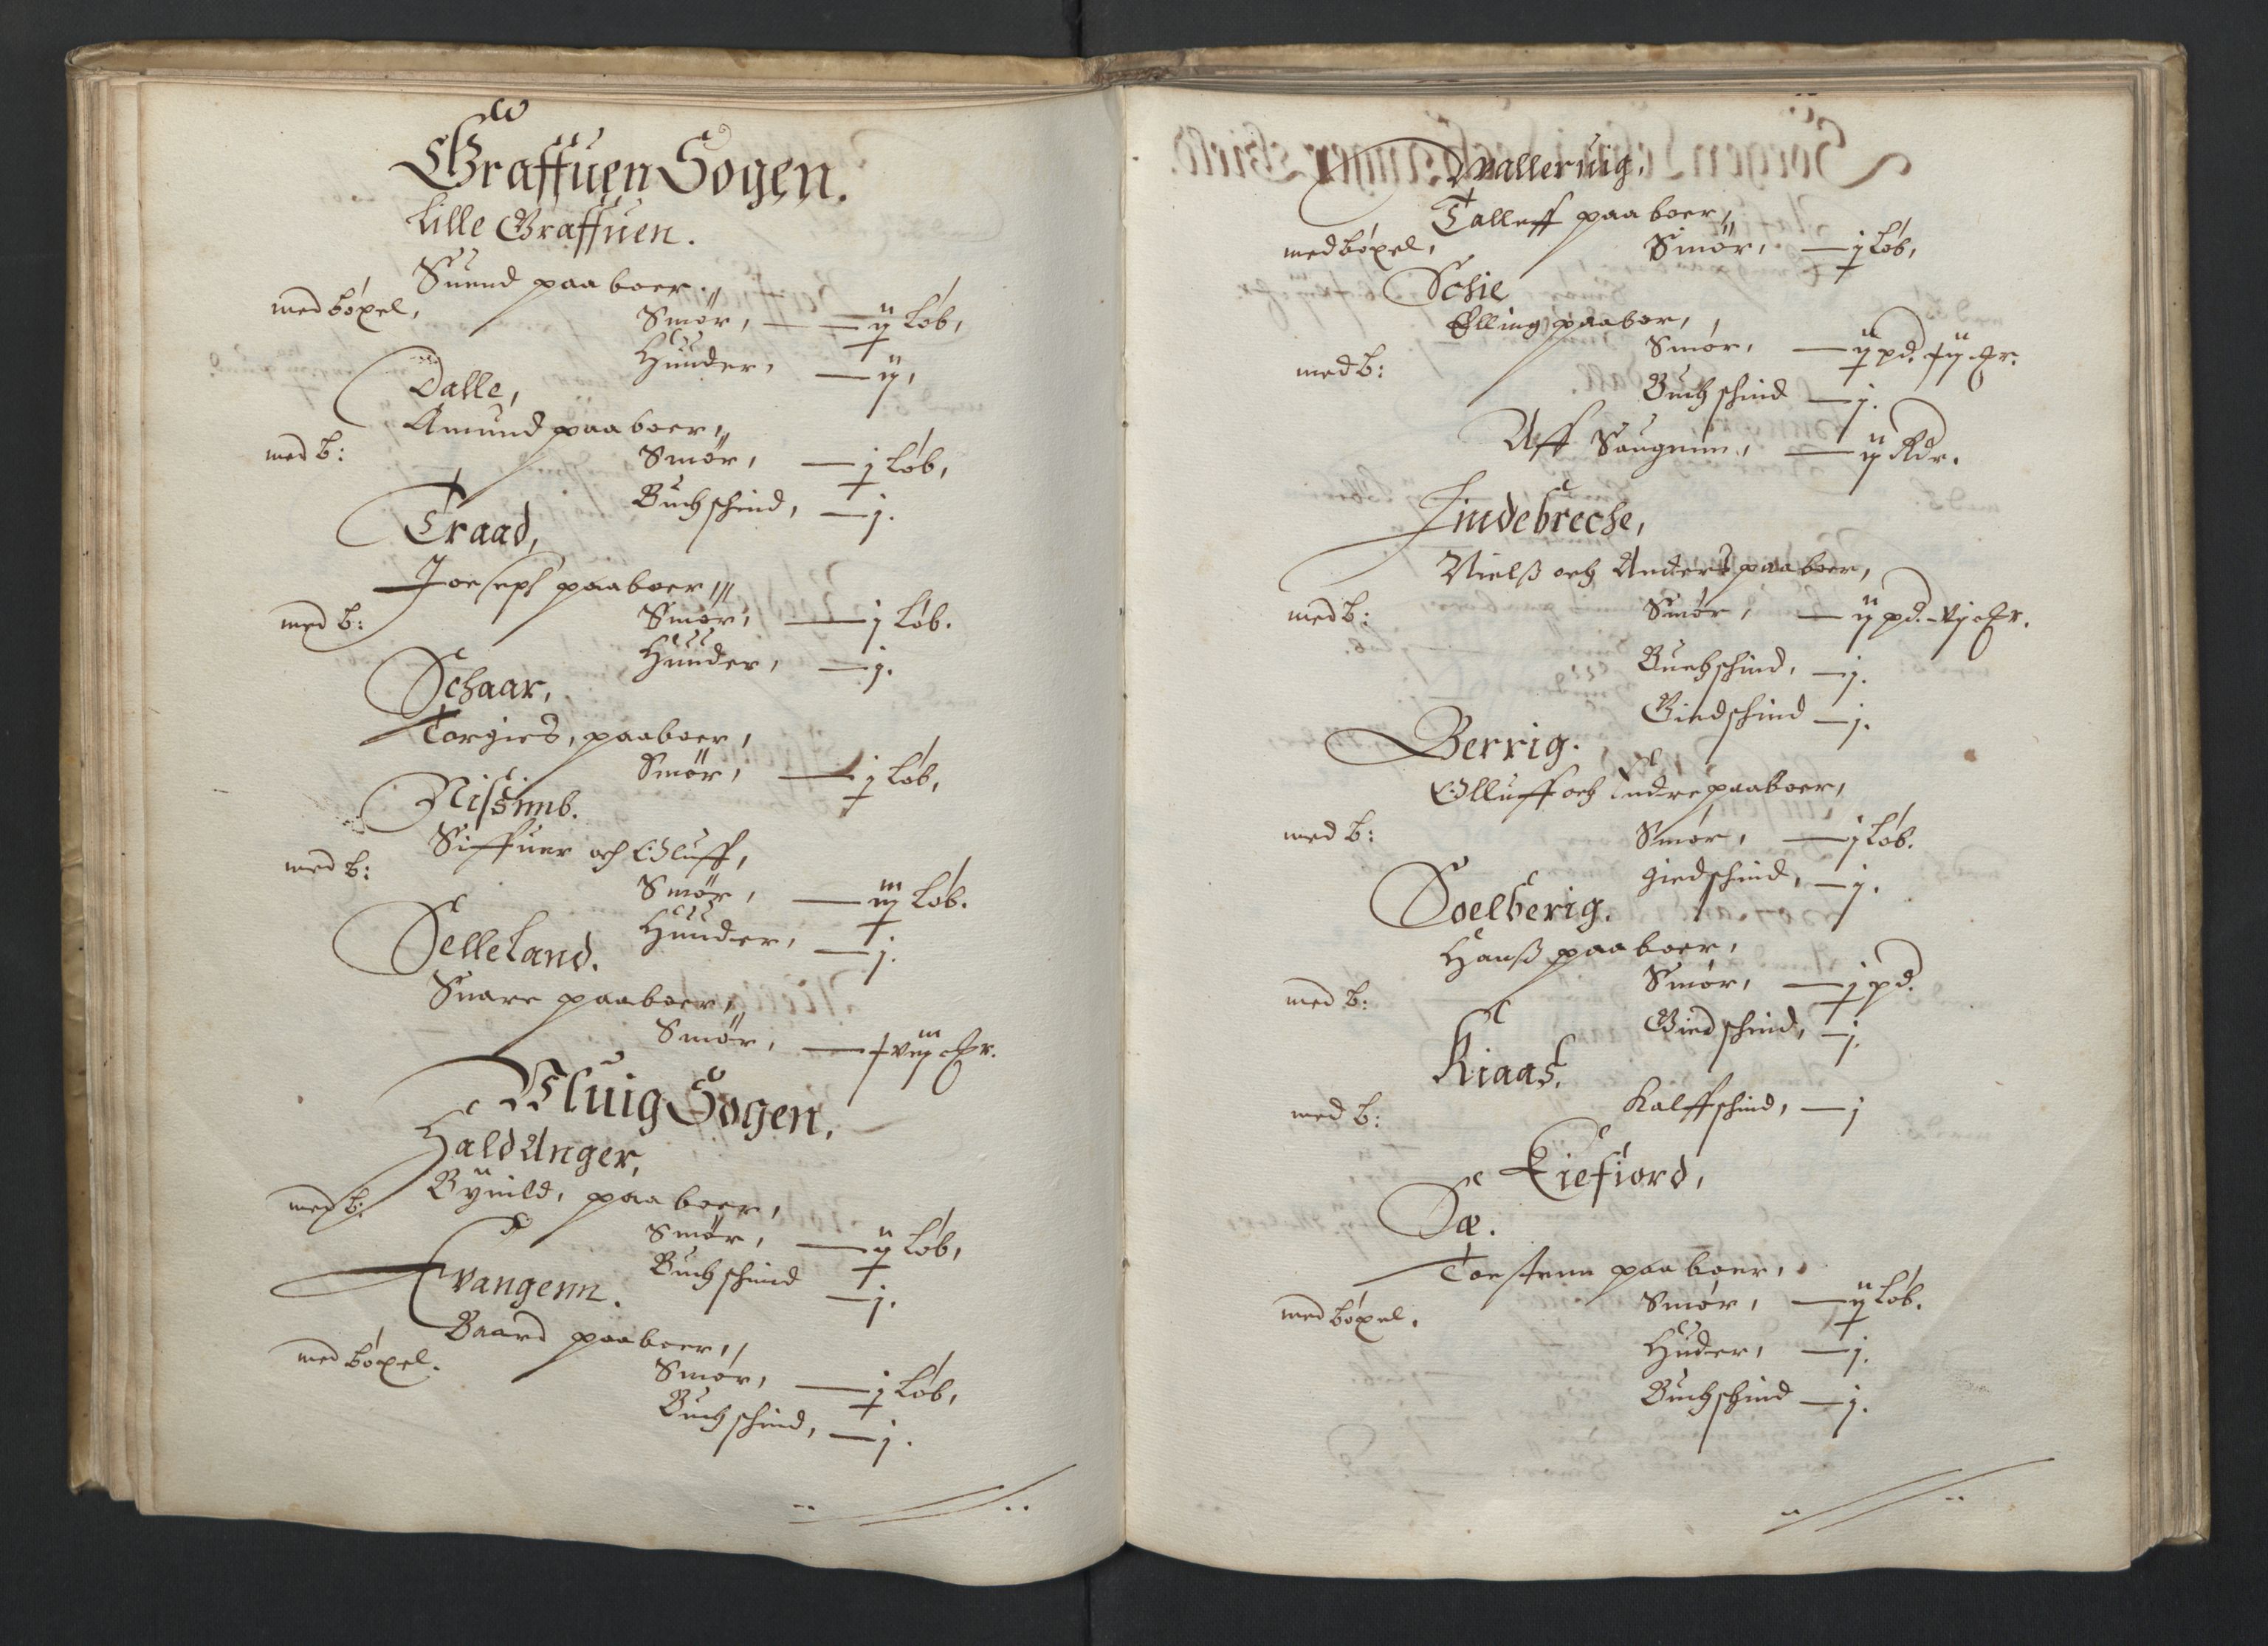 Graffuen Sogen.
Lille Graffuen.
Suend paa boer,
med bøxel,
Smør, — ij Løb,
Huuder, — ij,
Dalle,
Amund paa boer,
med b:
Smør, — j Løb,
Buchschind, — j.
Traad,
Joeseph paaboer,
med b:
Smør, — j Løb.
Huuder, — j.
Schaar,
Torgies, paaboer,
Smør, — j Løb,
Siffuer och Olluff,
med b:
Smør, — iij Løb.
Huuder, — j.
Selleland.
Snare paaboer,
Smør,
Vluig Sogen.
Haldanger,
paa boer,
med b:
Smør, — ij Løb,
Buchschind — j.
Tvangenn.
Baard paaboer,
med bøxel.
Smør, — j Løb,
Buchschind, — j.
Qvalleruig.
Talleff paa boer,
med bøxel,
Smør, — j Løb,
Schie
Elling paaboer,
med b:
Smør, — ij pd.
Buchschind — j.
Aff Saugenn, — ij Rdr.
Lindebreche,
Nielß och Anders paa boer,
med b:
Smør, — ij pd.
Buchschind, — j.
Giedschind — j.
Berrig.
Olluff och Endre paaboer,
med b:
Smør, — j Løb.
giedschind, — j.
Soelberig.
Hanß paa boer,
med b:
Smør, — j pd.
Giedschind, — j.
Kiaas,
med b:
Kalffschind, — j
Eiefiord,
Sæ.
Torstenn paa boer,
med bøxel,
Smør, — ij Løb.
Huder, — j.
Buchschind — j.